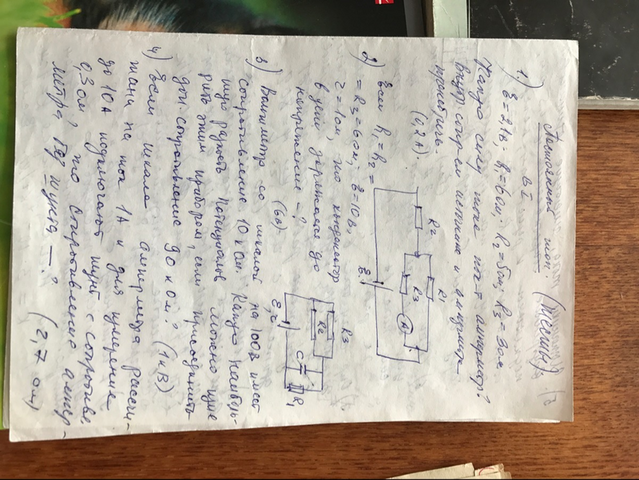 Постоянный ток
В I (тесты)
1) Ɛ = 2,1 В; R₁ = 6 Ом; R₂ = 5 Ом; R₃ = 3 Ом.
Какую силу тока пок-т амперметр?
Внутр. сопр-ем источника и амперметра
пренебречь. (0,2 А).
R₂ R₁ R₃ A Ɛ
2) Если R₁ = R₂ =
= R₃ = 6 Ом; Ɛ = 10 В;
r = 1 Ом, то конденсатор
в цепи заряжается до
напряжения – ? (6 В)
R₃ R₂ C R₁ Ɛ, r
3) Вольтметр со шкалой на 100 В имеет
сопротивление 10 кОм. Какую наиболь-
шую разность потенциалов можно изме-
рить этим прибором, если присоединить
доп. сопротивление 90 кОм? (1 кВ)
4) Если шкала амперметра рассчи-
тана на ток 1 А и для измерения
до 10 А подключают шунт с сопротивл.
0,3 Ом, то сопротивление ампер-
метра без шунта – ? (2,7 Ом)